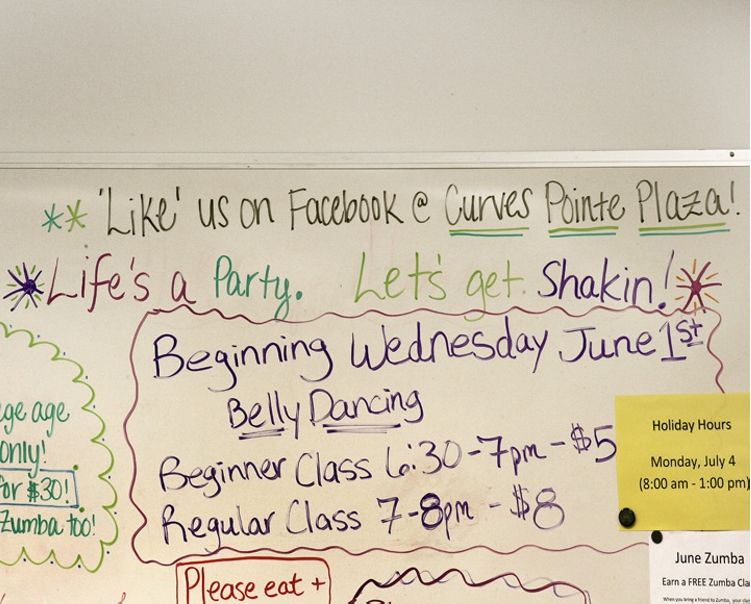 'Like' us on Facebook @ Curves Pointe Plaza!
Life's a Party. Let's get Shakin!
Beginning Wednesday June 1st
Belly Dancing
Beginner Class 6:30-7pm - $5
Regular Class 7-8pm - $8
ge age
only!
for $30!
Zumba too!
Holiday Hours
Monday, July 4
(8:00 am - 1:00 pm)
June Zumba
Earn a FREE Zumba Cla
When you bring a friend to Zumba, your
Please eat +